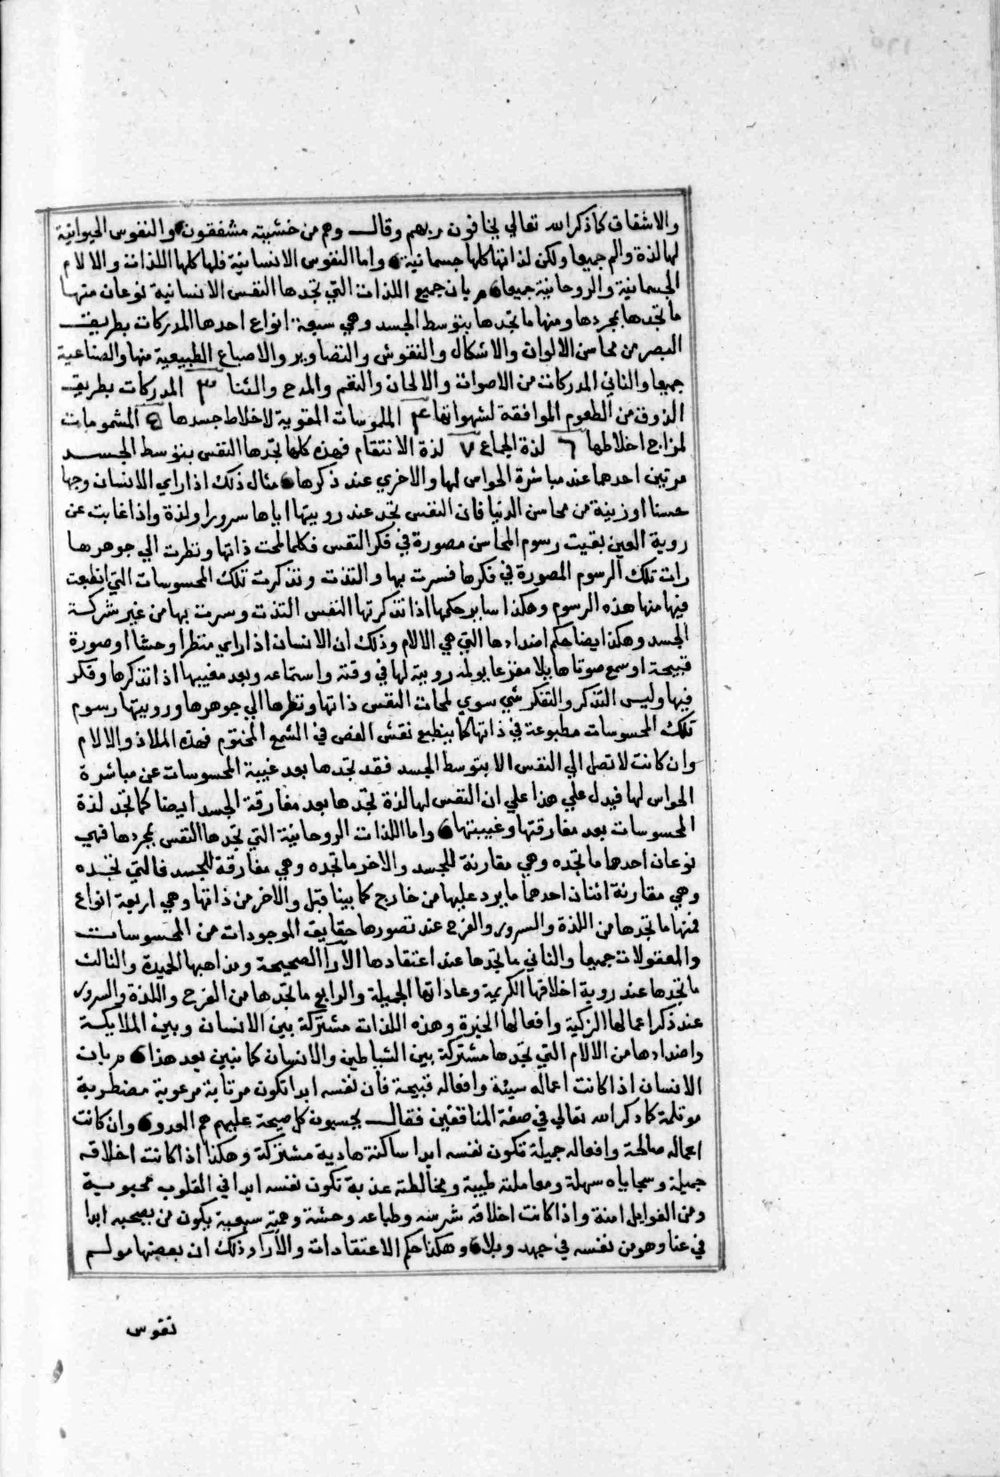 والاشفاق كما ذكر الله تعالي يخافون ربهم وقال وهم من خشيته مشفقون والنفوس الحيوانية
لها لذة والم جميعا ولكن لذاتها كلها جسمانية واما النفوس الانسانية فلها كلها اللذات والالام
الجسمانية والروحانية جميعا بيان جميع اللذات التي تجدها النفس الانسانية نوعان منها
ما تجدها بمجردها ومنها ما تجدها بتوسط الجسد وهي سبعة انواع احدها المدركات بطريق
البصر من محاسن الالوان والاشكال والنقوش والتصاوير والاصباغ الطبيعية منها والصناعية
جميعا والثاني المدركات من الاصوات والالحان والنغم والمدح والثنا ٣ المدركات بطريق
الذوق من الطعوم الموافقة لشهواتها ٤ الملموسات المقوية لاخلاط جسدها ٥ المشمومات
لمزاج اخلاطها ٦ لذة الجماع ٧ لذة الانتقام فهذه كلها تجدها النفس بتوسط الجسد
مرتين احدهما عند مباشرة الحواس لها والاخري عند ذكرها مثال ذلك اذا راي الانسان وجها
حسنا او زينة من محاسن الدنيا فان النفس تجد عند رويتها اياها سرورا ولذة واذا غابت عن
روية العين بقيت رسوم المحاسن مصورة في فكر النفس فكلما لمحت ذاتها ونظرت الي جوهرها
رات تلك الرسوم المصورة في فكرها فسرت بها والتذت وتذكرت تلك المحسوسات التي انطبعت
فيها منها هذه الرسوم وهكذا ساير حكمها اذا تذكرتها النفس التذت وسرت بها من غير شركة
الجسد وهكذا ايضا حكم اضدادها التي هي الالام وذلك ان الانسان اذا راي منظرا وحشا او صورة
قبيحة او سمع صوتا هايلا مفزعا يولمه رويته لها في وقته واستماعه وبعد مغيبها اذا تذكرها وفكر
فيها وليس التذكر والتفكر شي سوي لمحات النفس ذاتها ونظرها الي جوهرها ورويتها رسوم
تلك المحسوسات مطبوعة في ذاتها كما ينطبع نقش الفص في الشمع المختوم فهذه الملاذ والالام
وان كانت لا تصل الي النفس الا بتوسط الجسد فقد تجدها بعد غيبة المحسوسات عن مباشرة
الحواس لها فيدل علي هذا علي ان النفس لها لذة تجدها بعد مفارقة الجسد ايضا كما تجد لذة
المحسوسات بعد مفارقتها وغيبتها واما اللذات الروحانية التي تجدها النفس بمجردها فهي
نوعان احدها ما تجده وهي مقارنة للجسد والاخر ما تجده وهي مفارقة للجسد فالتي تجده
وهي مقارنة اثنان احدهما ما يرد عليها من خارج كما بينا قبل والاخر من ذاتها وهي اربعة انواع
فمنها ما تجدها من اللذة والسرور والفرح عند تصورها حقايق الموجودات من المحسوسات
والمعقولات جميعا والثاني ما تجدها عند اعتقادها الآرا الصحيحة ومذاهبها الحميدة والثالث
ما تجدها عند روية اخلاقها الكريمة وعاداتها الجميلة والرابع ما تجدها من الفرح واللذة والسرور
عند ذكر اعمالها الزكية وافعالها الخيرة وهذه اللذات مشتركة بين الانسان وبين الملايكة
واضدادها من الالام التي تجدها مشتركة بين الشياطين والانسان كما نبين بعد هذا بيان
الانسان اذا كانت اعماله سيئة وافعاله قبيحة فان نفسه ابدا تكون مرتابة مرعوبة مضطربة
موتلمة كما ذكر الله تعالي في صفة المنافقين فقال يحسبون كل صيحة عليهم هم العدو وان كانت
اعماله صالحة وافعاله جميلة تكون نفسه ابدا ساكنة هادية مشتركة وهكذا اذا كانت اخلاقه
جميلة وسجاياه سهلة ومعاملته طيبة ومخالطته عذبة تكون نفسه ابدا في القلوب محبوبة
ومن الغوايل امنة واذا كانت اخلاقه شرسة وطباعه وحشة وهمته سبعية يكون من يصحبه ابدا
في عنا وهو من نفسه في جهد وبلا وهكذا حكم الاعتقادات والآرا وذلك ان بعضها مولم
نفوس